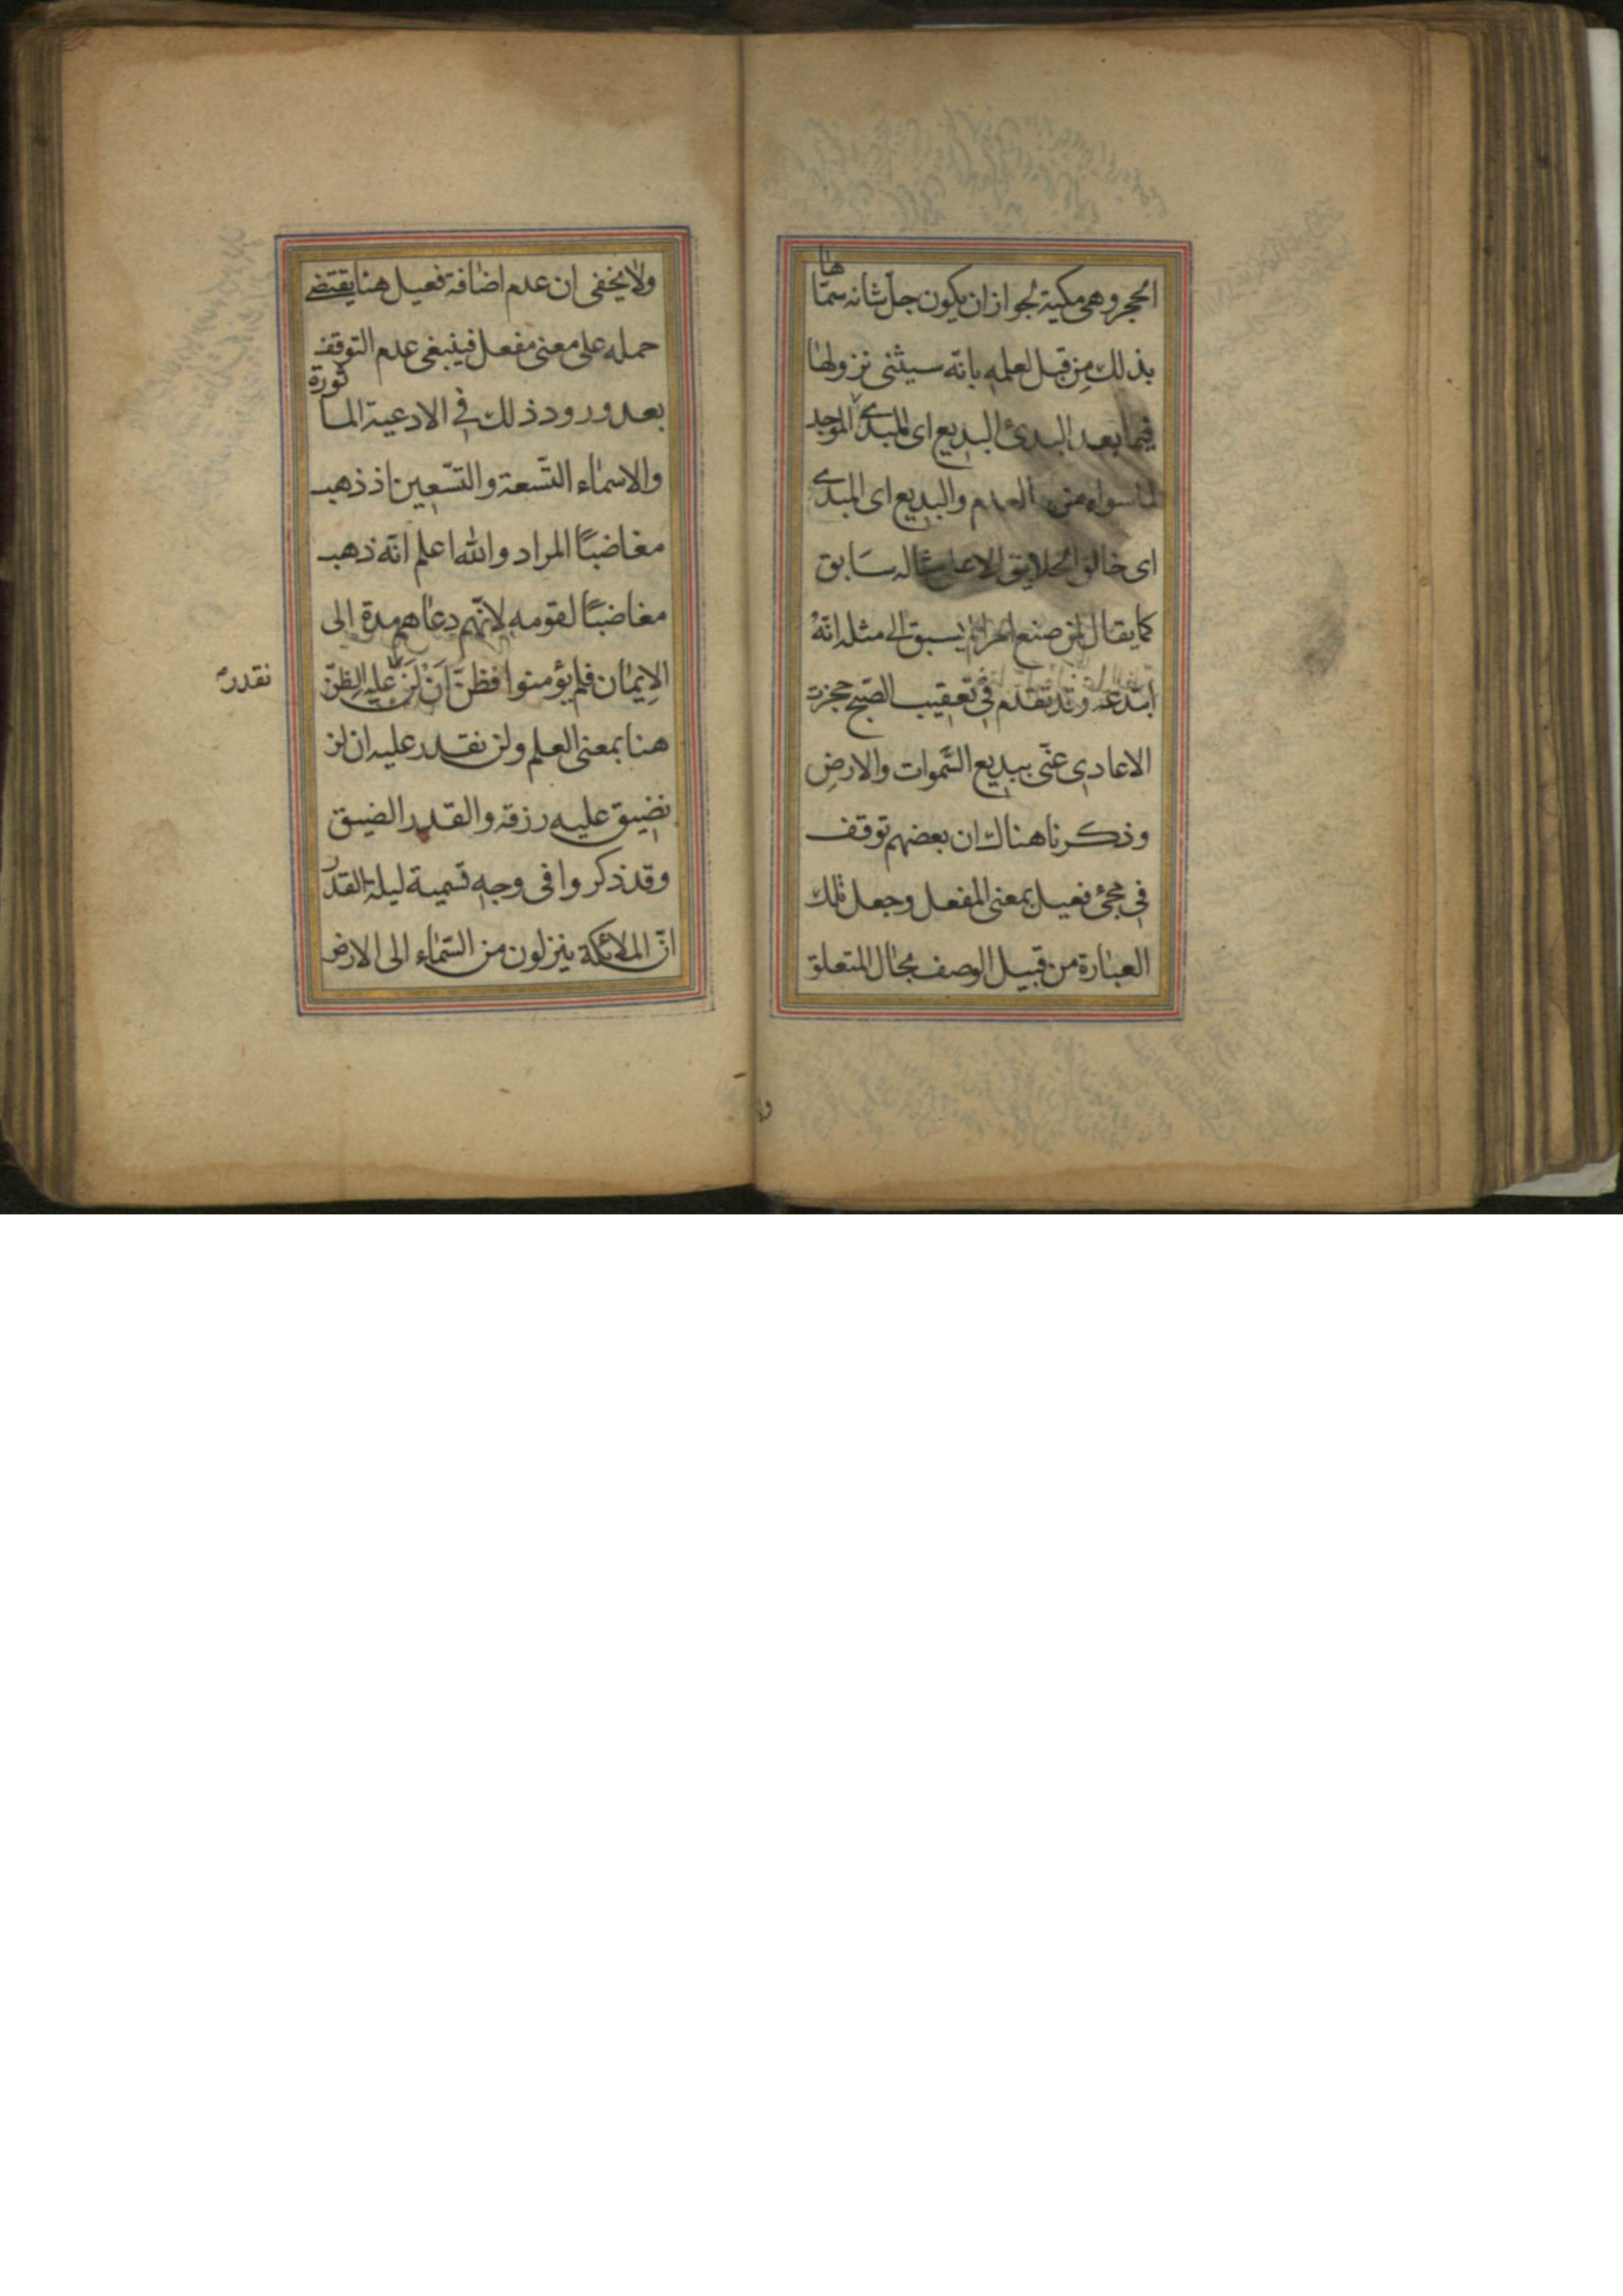 الحجر وهى مكية لجواز ان يكون جل شانه سمّاها
بذلك من قبل لعلمه بانّه سيثنى نزولها
فيما بعد البدئ البديع اى المبدئ الموجد
لما سواه من العدم والبديع اى المبدئ
اى خالق الخلايق لا على مثال سَابق
كما يقال لمن صنع امرا لم يسبق الى مثله انّهُ
ابتدعه وقد تقدّم فى تعقيب الصّبح حجزت
الاعادى عنّى ببديع السّموات والارضِ
وذكرنا هناك ان بعضهم توقف
فى مجئ فعيل بمعنى المفعل وجعل تلك
العبارة من قبيل الوصف بحال المتعلق
ولا
ولا يخفى ان عدم اضافة فعيل هنا يقتضے
حمله على معنى مفعل فينبغى عدم التوقف
بعد ورود ذلك فى الادعية الماثورة
والاسماء التّسعة والتسّعين اذ ذهب
مغاضبًا المراد والله اعلم انّه ذهب
مغاضبًا لقومه لانّهم دعاهم مدة الى
الايمان فلم يؤمنوا فظنَّ اَنْ لَنْ عليه الظنّ
نقدر
هنا بمعنى العلم ولن نقدر عليه ان لن
نضيق عليه رزقه والقدر الضيق
وقد ذكروا فى وجه تسمية ليلة القدر
انّ الملائكة ينزلون من السّماء الى الارض